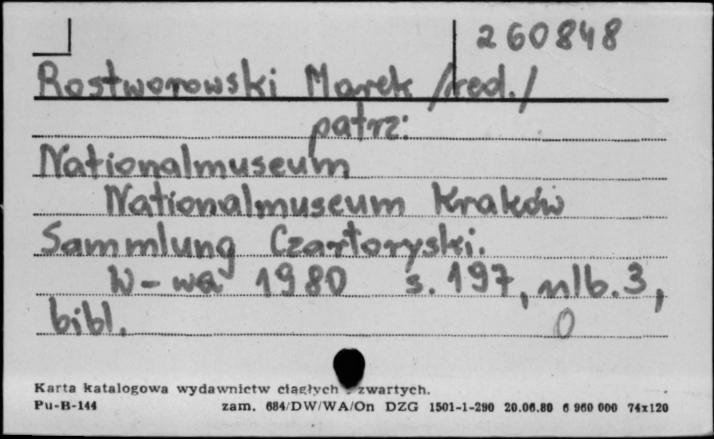 260848
Rostworowski Marek /red./
patrz:
Nationalmuseum
Nationalmuseum Kraków
Sammlung Czartoryski.
W-wa 1980 s. 197, nlb. 3,
bibl. 0
Karta katalogowa wydawnictw ciągłych zwartych.
Pu-B-144 zam. 684/DW/WA/On DZG 1501-1-290 20.06.80 6 960 000 74x120